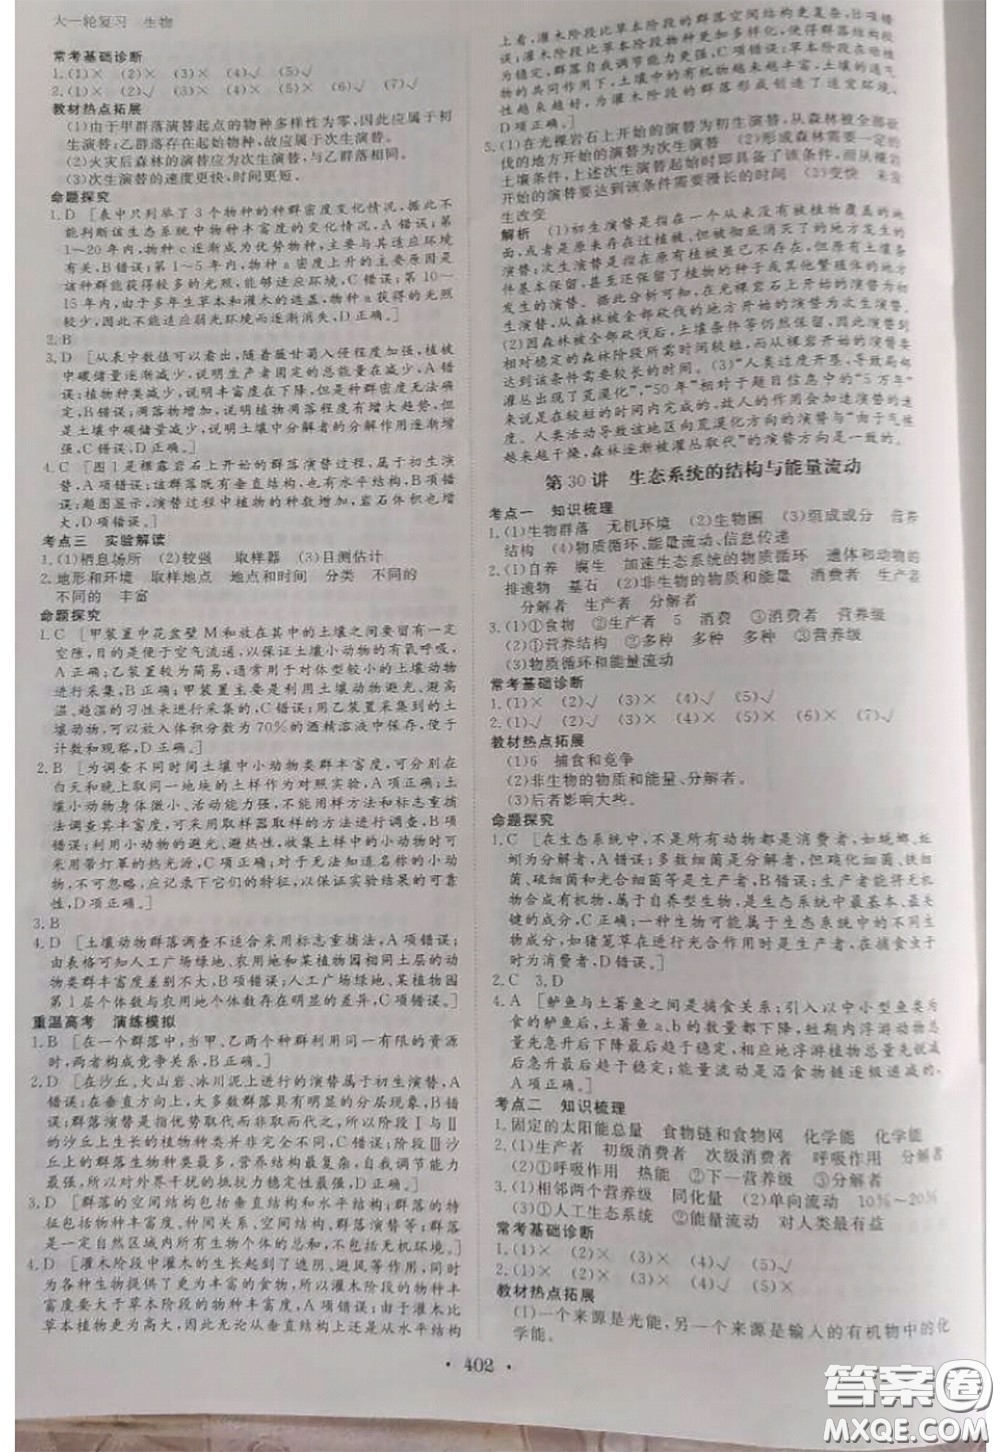 大一轮复习　生物
常考基础诊断
1.(1)×　(2)×　(3)×　(4)√　(5)√
2.(1)×　(2)√　(3)×　(4)√　(5)√　(6)√　(7)√
教材热点拓展
(1)由于甲群落演替起点的物种多样性为零,因此应属于初
生演替;乙群落存在起始物种,故应属于次生演替。
(2)火灾后森林的演替应为次生演替,与乙群落相同。
(3)次生演替的速度更快,时间更短。
命题探究
1.D　[表中只列举了3个物种的种群密度变化情况,据此不
能判断该生态系统中物种丰富度的变化情况,A错误;第
1~20年内,物种c逐渐成为优势物种,主要与其适应环境
有关,B错误;第1~5年内,物种a密度上升的主要原因是
该种群能获得较多的光照,能够适应环境,C错误;第10~
15年内,由于多年生草本和灌木的遮盖,物种a获得的光照
较少,因此不能适应弱光环境而逐渐消失,D正确。]
2.B
3.D　[从表中数值可以看出,随着薇甘菊入侵程度加重,植被
中碳储量逐渐减少,说明生产者固定的总能量在减少,A错
误;植物种类减少,说明丰富度在下降,但是种群密度无法确
定,B错误;凋落物增加,说明凋落物层丰富度有增大趋势,
土壤中碳储量减少,说明土壤中分解者的分解作用逐渐增
强,C错误,D正确。]
4.C　[图1是裸露岩石上开始的群落演替过程,属于初生演
替,A项错误;该群落既有垂直结构,也有水平结构,B项错
误;演替过程中植物的种数增加,导致植物、岩石体积也增
大,D项错误。]
考点三　实验解读
1.(1)栖息场所　(2)较强　取样器　(3)目测估计
2.地形和环境　取样地点　地点和时间　分类　不同的
不同的　丰富
命题探究
1.C　[甲装置中花盆壁M和放在其中的土壤之间要留有一定
空隙,目的是便于空气流通,以保证土壤小动物的有氧呼吸,
A正确;乙装置较为简易,通常用于对体型较小的土壤动物
进行采集,B正确;甲装置主要利用土壤动物避光、避高
温、趋湿的习性来进行采集的,C错误;用乙装置采集的土壤
动物,可以放入体积分数为70%的酒精溶液中保存,便于
计数和观察,D正确。]
2.B　[为调查不同时间土壤中小动物类群丰富度,可分别在
白天和晚上取同一地块的土样作为材料,A项正确;土
壤小动物身体微小、活动能力强,不适于用样方法和标志重捕
法调查其丰富度,可采用取样器取样的方法进行调查,B项错
误;利用小动物的避光、避热性,收集土样中的小动物可采
用带灯罩的热光源,C项正确;对于无法知道名称的小动
物不可忽略,应记录下它们的特征,以保证实验结果的可靠
性,D项正确。]
3.B
4.D　[土壤动物群落调查不适合采用标志重捕法,A项错误;
由表格可知人工广场绿地、农用地和某植物园相同土层的动
物类群丰富度差别不大,B项错误;人工广场绿地、某植物园
第1层个体数与农用地个体数存在明显的差异,C项错误。]
重温高考　演练模拟
1.B　[在一个群落中,当甲、乙两个种群利用同一有限的资源
时,两者构成竞争关系,B正确。]
2.D　[在沙丘、火山岩、冰川泥上进行的演替属于初生演替,A
错误;在垂直方向上,大多数群落具有明显的分层现象,B错误;
群落演替是优势取代而非取而代之,所以,所以阶段Ⅰ与Ⅱ
的沙丘上生长的植物种类并非完全不同,C错误;阶段Ⅲ沙
丘上的群落生物种类最多,营养结构最为复杂,抵抗力最
强,所以,对外界干扰的抵抗力稳定性最强,D正确。]
3.D　[群落的空间结构包括垂直结构和水平结构;群落的特
征包括物种丰富度、种间关系、空间结构、群落演替等;群落是
一定自然区域内所有生物个体的总和,不包括无机环境。]
4.D　[灌木阶段中灌木的生长起到了遮阴、避风等作用,同时
为各种生物提供了更为丰富的食物,所以灌木阶段的物种丰
富度要大于草本阶段的物种丰富度,A项正确;由于灌木比
草本植物更为高大,因此无论从垂直结构上还是从水平结构
上看,灌木阶段比草本阶段的群落空间结构
壤的共同作用下,土壤中的有机物越来越丰富,土壤的透气
性越来越好,为灌木阶段的群落形成创造了适宜环境,
D正确。]
5.(1)在光裸岩石上开始的演替为初生演替,从森林被全部砍
伐的地方开始的演替为次生演替　(2)形成森林需要一定的
土壤条件,上述次生演替起始时即具备该条件,而从裸岩
开始的演替要达到该条件需要漫长的时间　(3)变快　未发
生改变
解析　(1)初生演替是指在一个从来没有被植物覆盖的地
面,或者是原来存在过植被、但被彻底消灭了的地方发生的
演替;次生演替是指在原有植被虽已不存在,但原有土壤条
件基本保留,甚至还保留了植物的种子或其他繁殖体的地方
发生的演替。据此分析可知,在光裸岩石上开始的演替为初生
演替,从森林被全部砍伐的地方开始的演替为次生演替。
(2)森林被全部砍伐的地方,土壤条件等仍然保留,发展到
相对稳定的森林阶段所需时间较短,而从裸岩开始的演替要
达到该条件需要较长的时间。(3)"人类过度开垦,导致局部
灌丛出现了荒漠化","50年"相对于题目信息中的"5万年"
来说是在较短的时间内完成的,故人的作用会加速演替的
速度。人类活动导致该地区向荒漠化方向的演替与"由于气
候越来越干燥,森林逐渐被灌丛取代"的演替方向是一致的。
第30讲　生态系统的结构与能量流动
考点一　知识梳理
1.(1)生物群落　无机环境　(2)生物圈　(3)组成成分　营养
结构　(4)物质循环、能量流动、信息传递
2.(1)自养　腐生　加速生态系统的物质循环　遗体和动物的
排遗物　基石　(2)非生物的物质和能量　消费者　生产者
分解者　生产者　分解者
3.(1)①食物　②生产者　5　消费　③消费者　营养级
(2)①营养结构　②多种　多种　多种　③营养级
(3)物质循环和能量流动
常考基础诊断
1.(1)√　(2)×　(3)×　(4)√　(5)√
2.(1)√　(2)√　(3)×　(4)×　(5)×　(6)×　(7)√
教材热点拓展
(1)6　捕食和竞争
(2)非生物的物质和能量、分解者。
(3)后者影响大些。
命题探究
1.C　[在生态系统中,不是所有动物都是消费者,如蜣螂、蚯
蚓为分解者,A错误;多数细菌是分解者,但硝化细菌、铁细
菌、硫细菌和光合细菌等是生产者,B错误;生产者能把无机
物合成有机物,属于自养型生物,是生态系统中最基本、最关
键的成分,C正确;一种生物可能属于生态系统中的不同生
物成分,如猪笼草在进行光合作用时是生产者,在捕食虫子
时为消费者,D错误。]
2.C　3.D
4.A　[鲈鱼与土著鱼之间是捕食关系;引入以中小型鱼类为食
的鲈鱼后,土著鱼a、b的数量都下降,短期内浮游动物
总量先急升后下降最后趋于稳定,相应地浮游植物总量先急
降后急升最后趋于稳定;能量流动是沿食物链进行的]
考点二　知识梳理
1.固定的太阳能总量　食物链和食物网　化学能　化学能
2.(1)生产者　初级消费者　次级消费者　呼吸作用　分解者
(2)①呼吸作用　热能　②下一营养级　③分解者
3.(1)相邻两个营养级　同化量　(2)单向流动　10%~20%
(3)①人工生态系统　②能量流动　对人类最有益
常考基础诊断
1.(1)×　(2)×　(3)×　(4)√
2.(1)×　(2)×　(3)×　(4)√　(5)×
教材热点拓展
(1)一个来源是光能,另一个来源是输入的有机物中的化
学能。
· 402 ·
答案圈
MXQE.COM